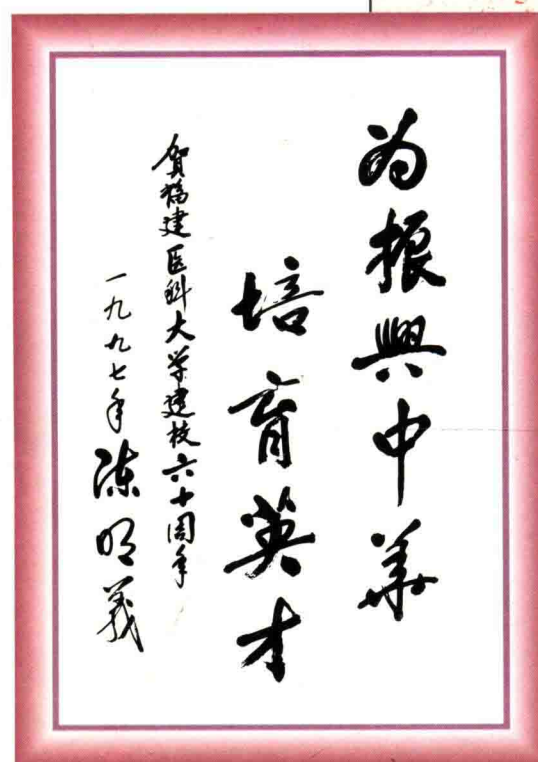 为振興中华
培育英才
贺福建医科大学建校六十周年
一九九七年 陈明義